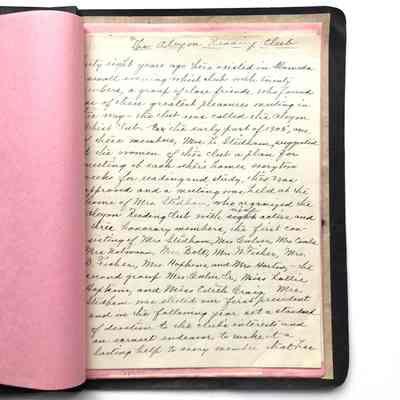 The Alcyon Reading Club
ty eight years ago there existed in Alameda
small evening whist club with twenty
mbers, a group of close friends, who found
of their greatest pleasures meeting in
way - the club was called the Alcyon
Whist Club. In the early part of 1905, one
of these members, Mrs. Stidham, suggested
to the women of this club a plan for
meeting at each other's homes every two
weeks for reading and study, this was
approved and a meeting was held at the
home of Mrs Stidham, who organized the
Alcyon Reading Club with eight active and
three honorary members, the first con
sisting of Mrs Stidham, Mrs Culver, Mrs Combs
Mrs Holtman, Mrs Bolt, Mrs W. Fisher, Mrs.
Fisher, Mrs Hopkins and Mrs - the
second group Mrs Sr, Miss Lottie
Hopkins, and Miss Edith Craig. Mrs
Stidham was elected our first president
and in the following year set a standard
of devotion to the club's interests and
an earnest endeavor to make it a
lasting help to every member that has